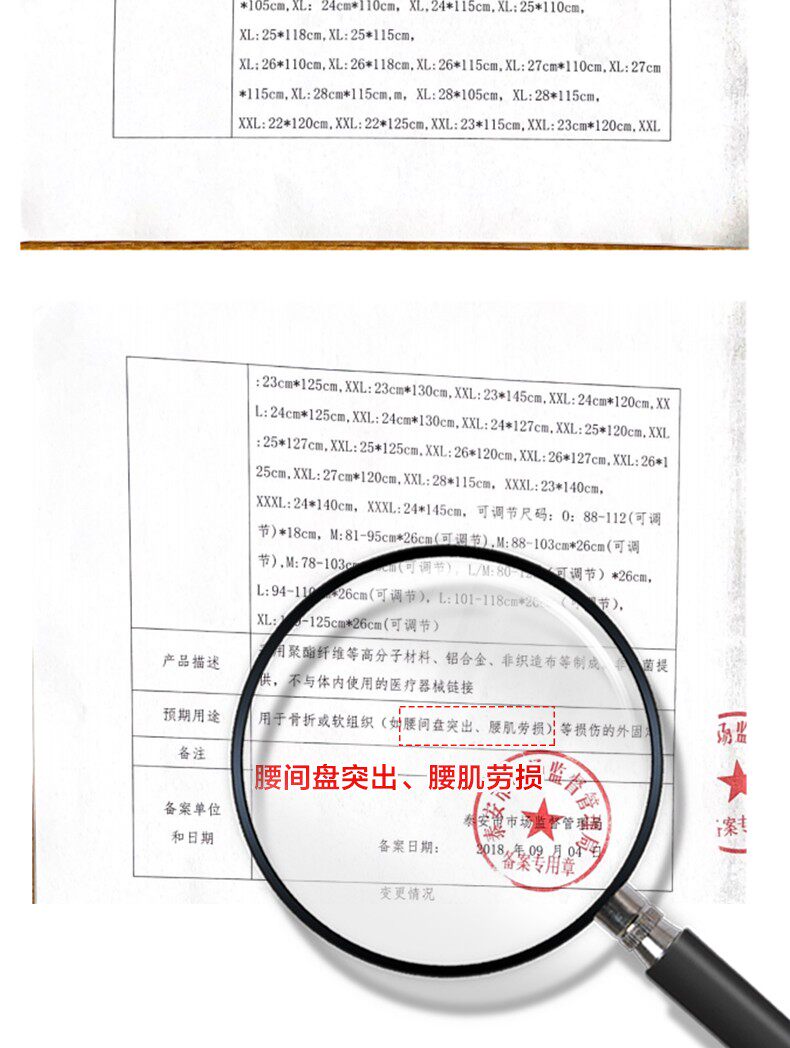 *105cm,XL: 24cm*110cm, XL,24*115cm,XL:25*110cm,
XL:25*118cm,XL:25*115cm,
XL;26*110cm,XL:26*118cm,XL:26*115cm,XL:27cm*110cm,XL:27cm
*115cm,XL:28cm*115cm,m, XL:28*105cm, XL:28*115cm,
XXL:22*120cm,XXL:22*125cm,XXL:23*115cm,XXL:23cm*120cm,XXL
:23cm*125cm,XXL:23cm*130cm,XXL:23*145cm,XXL:24cm*120cm,XX
L:24cm*125cm,XXL:24cm*130cm,XXL:24*127cm,XXL:25*120cm,XXL
:25*127cm,XXL:25*125cm,XXL:26*120cm,XXL:26*127cm,XXL:26*1
25cm,XXL:27cm*120cm,XXL:28*115cm, XXXL:23*140cm,
XXXL:24*140cm, XXXL:24*145cm, 可调节尺码: O: 88-112(可调
节)*18cm, M:81-95cm*26cm(可调节),M:88-103cm*26cm(可调
节),M:78-103cm (可调节), L/M:80- (可调节) *26cm,
L:94-110 *26cm(可调节), L:101-118cm*26 (可调节),
XL: -125cm*26cm(可调节)
产品描述
用聚酯纤维等高分子材料、铝合金、非织造布等制成,非 菌提
供, 不与体内使用的医疗器械链接
预期用途
用于骨折或软组织(如腰间盘突出、腰肌劳损)等损伤的外固
备注
腰间盘突出、腰肌劳损
备案单位
和日期
泰安市市场监督管理局
备案日期: 2018 年 09 月 04 日
泰安市场监督管理局
备案专用章
变更情况
场监
案专